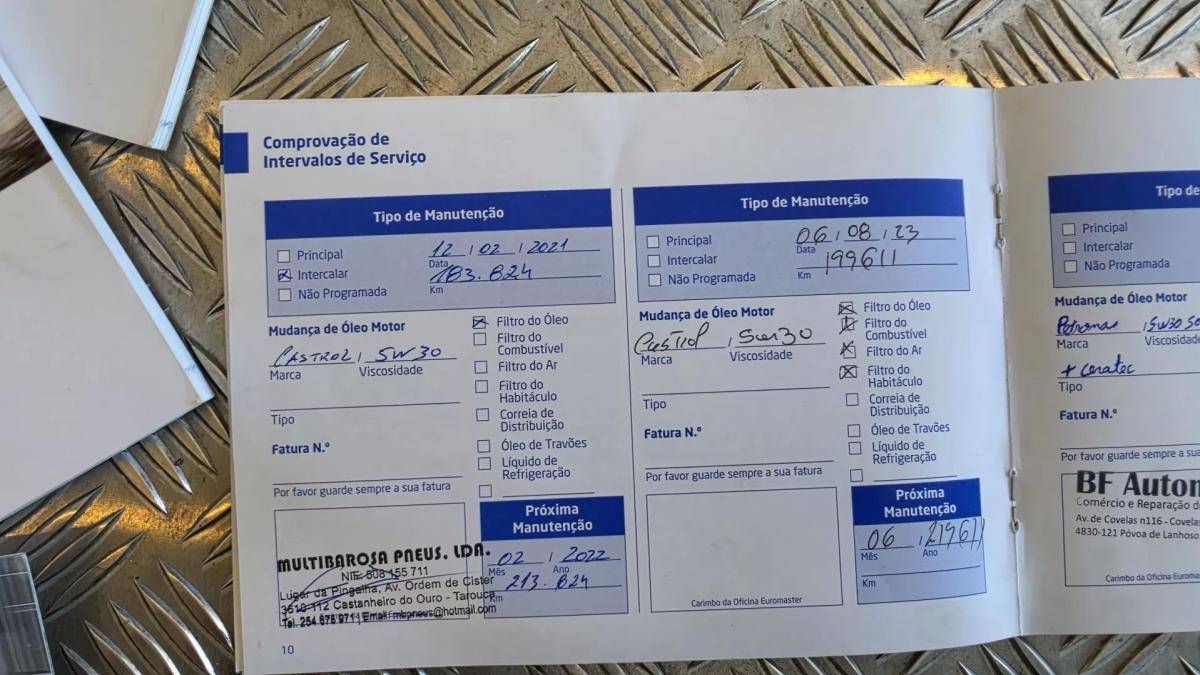 Comprovação de
Intervalos de Serviço
Tipo de Manutenção
Principal
Intercalar
Não Programada
12 / 02 / 2021
Data
183.824
Km
Mudança de Óleo Motor
CASTROL, 5W30
Marca Viscosidade
Tipo
Fatura N.º
Por favor guarde sempre a sua fatura
Filtro do Óleo
Filtro do
Combustível
Filtro do Ar
Filtro do
Habitáculo
Correia de
Distribuição
Óleo de Travões
Líquido de
Refrigeração
MULTIBAROSA PNEUS, LDA.
NIF: 508 455 711
Lugar da Pingalha, Av. Ordem de Cister
3610-112 Castanheiro do Ouro - Tarouca
Tel. 254 678 971 | Email: mbpneus@hotmail.com
Próxima
Manutenção
02 / 2022
Mês Ano
213.824
Km
10
Tipo de Manutenção
Principal
Intercalar
Não Programada
06 / 08 / 23
Data
199611
Km
Mudança de Óleo Motor
Castrol, 5w30
Marca Viscosidade
Tipo
Fatura N.º
Por favor guarde sempre a sua fatura
Filtro do Óleo
Filtro do
Combustível
Filtro do Ar
Filtro do
Habitáculo
Correia de
Distribuição
Óleo de Travões
Líquido de
Refrigeração
Carimbo da Oficina Euromaster
Próxima
Manutenção
06 / 219611
Mês Ano
Km
Tipo de
Principal
Intercalar
Não Programada
Mudança de Óleo Motor
Petronas, 5W30
Marca Viscosidade
+ Ceratec
Tipo
Fatura N.º
Por favor guarde sempre a sua
BF Autom
Comércio e Reparação d
Av. de Covelas n116 - Covelas
4830-121 Póvoa de Lanhoso
Carimbo da Oficina Euromaster